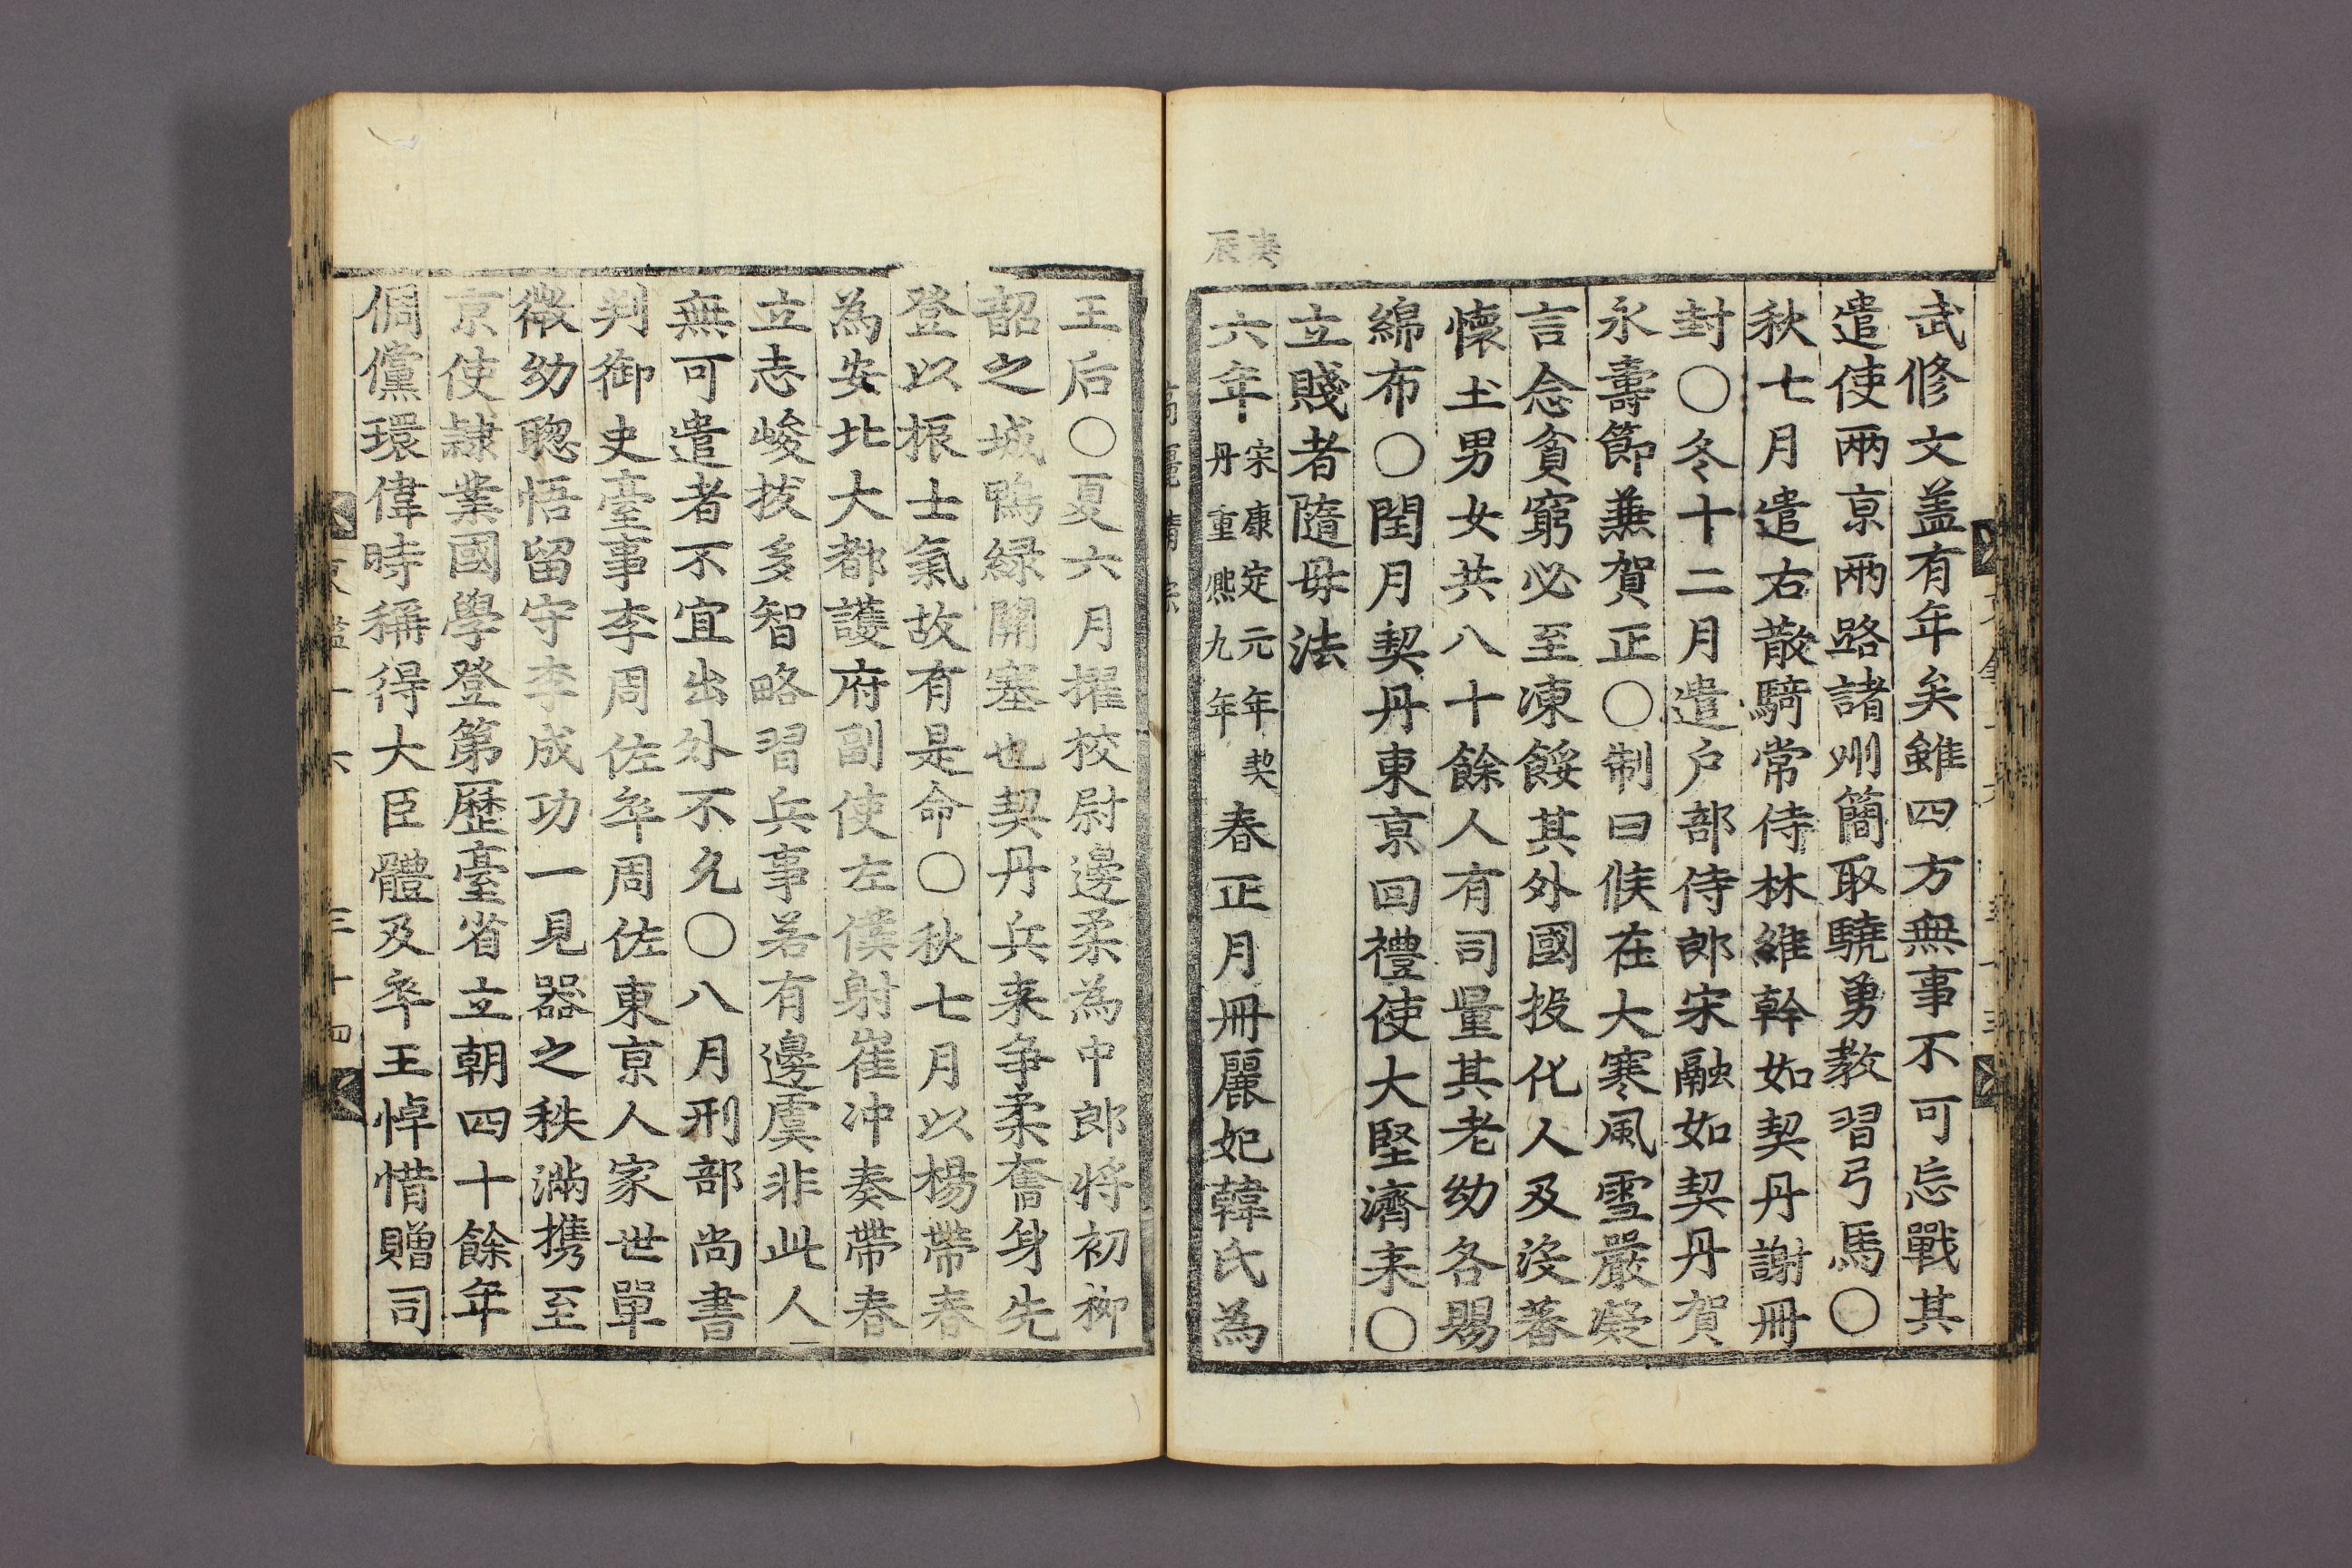 武修文盖有年矣雖四方無事不可忘戰其
遣使兩京兩路諸州簡取驍勇教習弓馬〇
秋七月遣右散騎常侍林維幹如契丹謝冊
封〇冬十二月遣戶部侍郎宋融如契丹賀
永壽節兼賀正〇制曰候在大寒風雪嚴凝
言念貧窮必至凍餒其外國投化人及沒蕃
懷土男女共八十餘人有司量其老幼各賜
綿布〇閏月契丹東京回禮使大堅濟来〇
立賤者隨母法
庚辰
六年宋康定元年契丹重熙九年春正月冊麗妃韓氏為
王后〇夏六月擢校尉邊柔為中郎将初柳
韶之城鴨緑開塞也契丹兵来争柔奮身先
登以振士氣故有是命〇秋七月以楊帶春
為安北大都護府副使左僕射崔冲奏帶春
立志峻拔多智略習兵事若有邊虞非此人
無可遣者不宜出外不允〇八月刑部尚書
判御史臺事李周佐卒周佐東京人家世單
微幼聦悟留守李成功一見器之秩滿携至
京使隷業國學登第歷臺省立朝四十餘年
倜儻環偉時稱得大臣體及卒王悼惜贈司